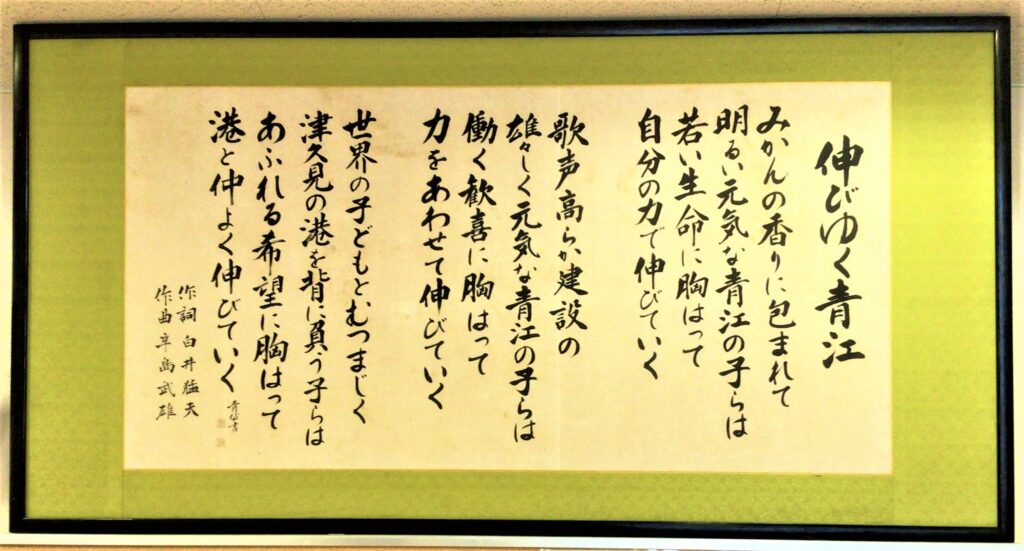 伸びゆく青江
みかんの香りに包まれて
明るい元気な青江の子らは
若い生命に胸はって
自分の力で伸びていく
歌声高らか建設の
雄々しく元気な青江の子らは
働く歓喜に胸はって
力をあわせて伸びていく
世界の子どもとむつまじく
津久見の港を背に負う子らは
あふれる希望に胸はって
港と仲よく伸びていく
作詞 白井猛夫
作曲 辛島武雄